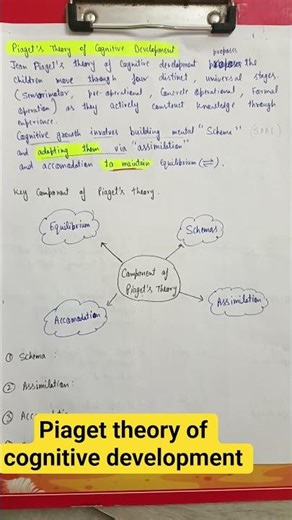 Piaget's Theory of Cognitive Development
proposes
Jean Piaget's theory of Cognitive development the
children move through four distinct, universal stages
(Sensorimotor, pre-operational, Concrete operational, Formal
operation) as they actively construct knowledge through
experience.
Cognitive growth involves building mental "Schema"
and adapting them via "assimilation"
and accomodation to maintain equilibrium (⇌)
Key Component of Piaget's theory.
Equilibrium
Schemas
Component of
Piaget's Theory
Accomodation
Assimilation
① Schema :
② Assimilation :
③
Piaget theory of
cognitive development